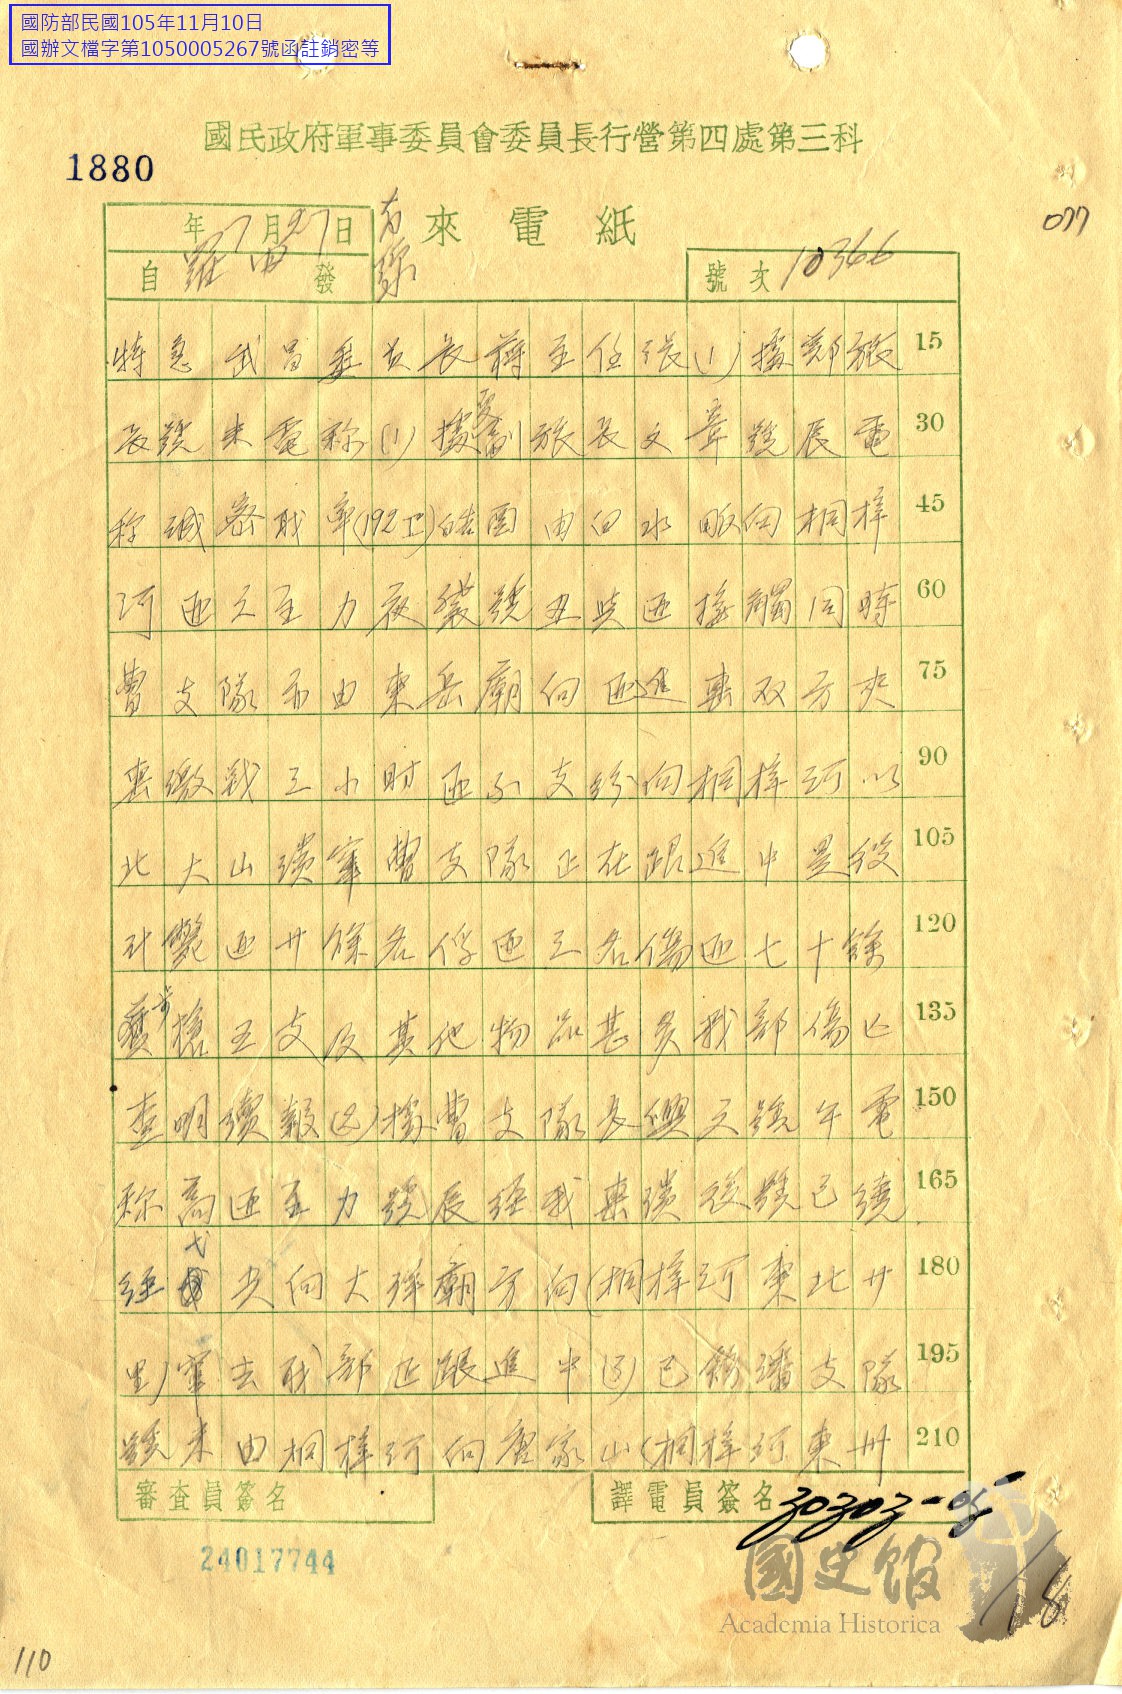 國防部民國105年11月10日
國辦文檔字第1050005267號函註銷密等
國民政府軍事委員會委員長行營第四處第三科
1880
077
年7月27日
來電紙
自羅田發
號次10366
特急武昌委員長蔣主任張(1)據鄭旅 15
長號未電称(1)據夏副旅長文章號辰電 30
称職署我率(192 )皓 由白水畈向桐梓 45
河匪之主力夜襲號丑與匪接觸同時 60
曹支隊亦由東岳廟向匪進擊双方夾 75
擊激战三小时匪不支紛向桐梓河以 90
北大山潰竄曹支隊正在跟進中是役 105
計斃匪廿餘名俘匪三名傷匪七十餘 120
獲步槍五支及其他物品甚多我部傷亡 135
查明續報(2)據曹支隊長 天號午電 150
称高匪主力號辰經我擊潰後號已繞 165
經 尖向大 廟方向(桐梓河東北廿 180
里)竄去我部正跟進中(3)已飭潘支隊 195
號未由桐梓河向唐家山(桐梓河東卅 210
審查員簽名
譯電員簽名
30303-05
24017744
國史館
Academia Historica
18
110